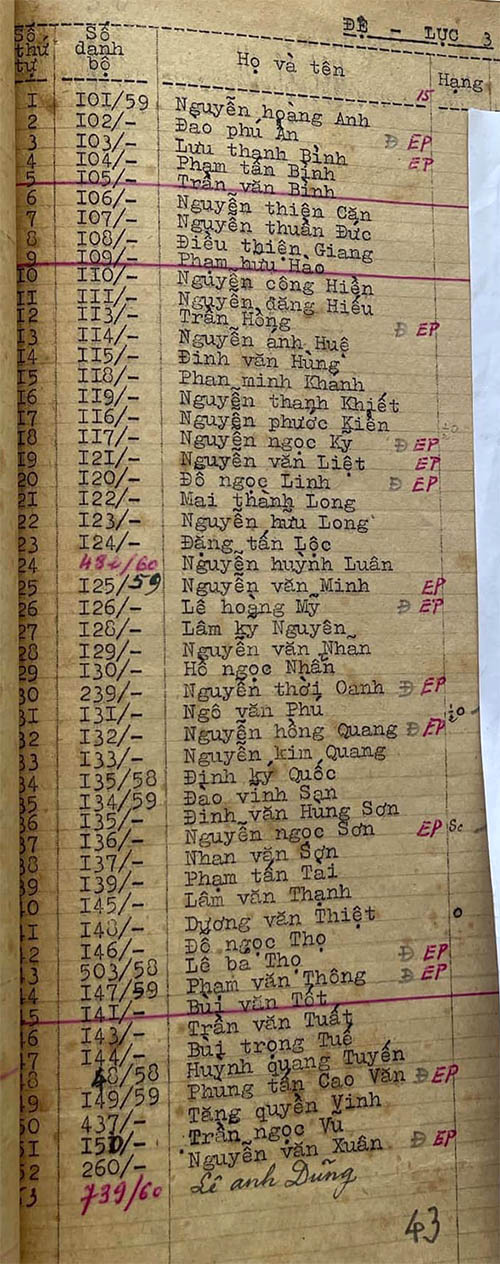 ĐỆ - LỤC 3
Số thứ tự Số danh bộ Họ và tên Hạng
15
1 I01/59 Nguyễn hoàng Anh
2 I02/- Đào phú Ẩn
3 I03/- Lưu thanh Bình Đ EP
4 I04/- Phạm tấn Bỉnh EP
5 I05/- Trần văn Bỉnh
6 I06/- Nguyễn thiên Căn
7 I07/- Nguyễn thuần Đức
8 I08/- Điều thiên Giang
9 I09/- Phạm hữu Hào
I0 II0/- Nguyễn công Hiền
II III/- Nguyễn đăng Hiếu
I2 II3/- Trần Hồng
I3 II4/- Nguyễn ánh Huệ Đ EP
I4 II5/- Đinh văn Hùng
I5 II8/- Phan minh Khánh
I6 II9/- Nguyễn thanh Khiết
I7 II6/- Nguyễn phước Kiên
I8 II7/- Nguyễn ngọc Kỳ Đ EP
I9 I2I/- Nguyễn văn Liệt EP
20 I20/- Đỗ ngọc Linh Đ EP
2I I22/- Mai thành Long
22 I23/- Nguyễn hữu Long
23 I24/- Đặng tấn Lộc
24 /60 Nguyễn huỳnh Luân
25 I25/59 Nguyễn văn Minh EP
26 I26/- Lê hoàng Mỹ Đ EP
27 I28/- Lâm kỳ Nguyên
28 I29/- Nguyễn văn Nhan
29 I30/- Hồ ngọc Nhẫn
30 239/- Nguyễn thời Oanh Đ EP
3I I3I/- Ngô văn Phú
32 I32/- Nguyễn hồng Quang Đ EP
33 I33/- Nguyễn kim Quang
34 I35/58 Định kỳ Quốc
35 I34/59 Đào vinh Sạn
36 I35/- Đinh văn Hùng Sơn
37 I36/- Nguyễn ngọc Sơn EP Sc
38 I37/- Nhan văn Sơn
39 I39/- Phạm tấn Tai
40 I45/- Lâm văn Thạnh
4I I48/- Dương văn Thiệt 0
42 I46/- Đỗ ngọc Thọ
43 503/58 Lê bá Thọ Đ EP
44 I47/59 Phạm văn Thông Đ EP
45 I4I/- Bùi văn Tốt
46 I43/- Trần văn Tuất
47 I44/- Bùi trọng Tuế
48 48/58 Huỳnh quang Tuyến
49 I49/59 Phung tấn Cao Văn Đ EP
50 437/- Tăng quyền Vinh
5I I5D/- Trần ngọc Vũ
52 260/- Nguyễn văn Xuân Đ EP
53 739/60 Lê anh Dũng
43